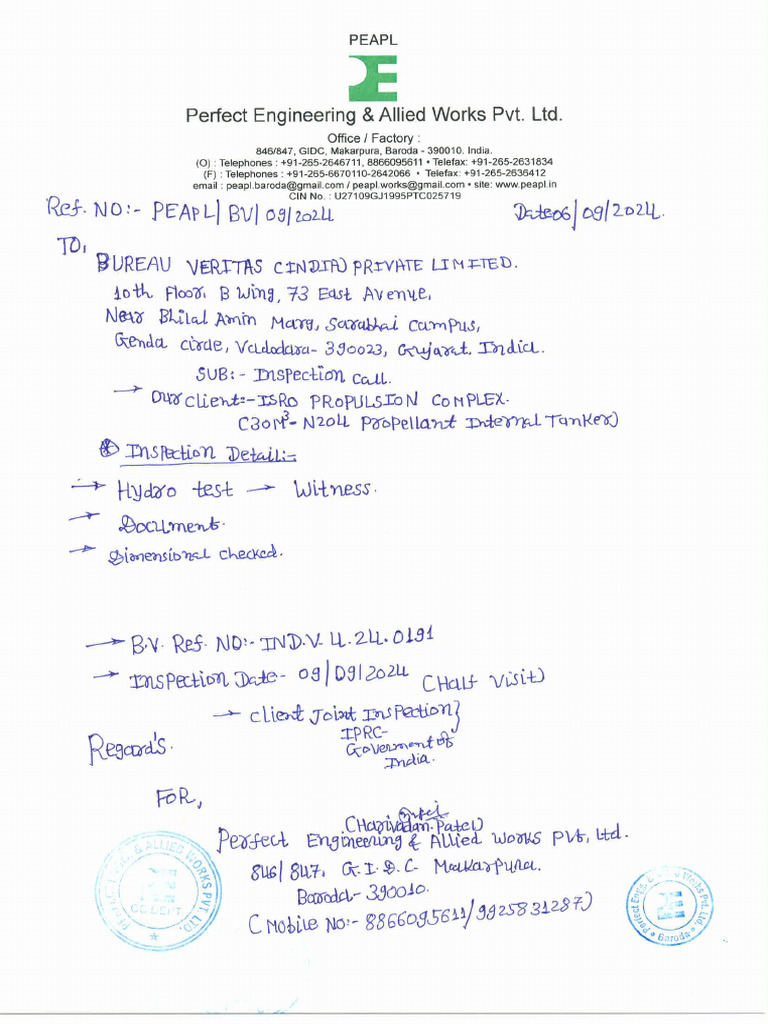 PEAPL
Perfect Engineering & Allied Works Pvt. Ltd.
Office / Factory :
846/847, GIDC, Makarpura, Baroda - 390010. India.
(O) : Telephones : +91-265-2646711, 8866095611 • Telefax: +91-265-2631834
(F) : Telephones : +91-265-6670110-2642066 • Telefax: +91-265-2636412
email : peapl.baroda@gmail.com / peapl.works@gmail.com • site: www.peapl.in
CIN No. : U27109GJ1995PTC025719
Ref. NO:- PEAPL/BV/09/2024 Date06/09/2024.
TO,
BUREAU VERITAS (INDIA) PRIVATE LIMITED.
10th Floor. B Wing, 73 East Avenue,
Near Bhilal Amin Marg, Sarabhai Campus,
Genda Circle, Vadodara- 390023, Gujarat. India.
SUB:- Inspection Call.
→ Our Client:- ISRO PROPULSION COMPLEX.
(30M³- N2O4 Propellant Internal Tanker)
Inspection Detail:-
→ Hydro test → Witness.
→ Document.
→ Dimensional Checked.
→ B.V. Ref. NO:- IND.V. 4.24.0191
→ Inspection Date- 09/09/2024 (Half Visit)
→ Client Joint Inspection}
IPRC-
Goverment of
India.
Regard's.
FOR,
(Harivadan Patel)
Perfect Engineering & Allied Works Pvt, Ltd.
846/847. G.I.D.C- Makarpura.
Baroda- 390010.
(Mobile No:- 8866095611/9925831287)
& ALLIED WORKS PVT. LTD.
Perfect Engg. Works Pvt. Ltd.
Baroda